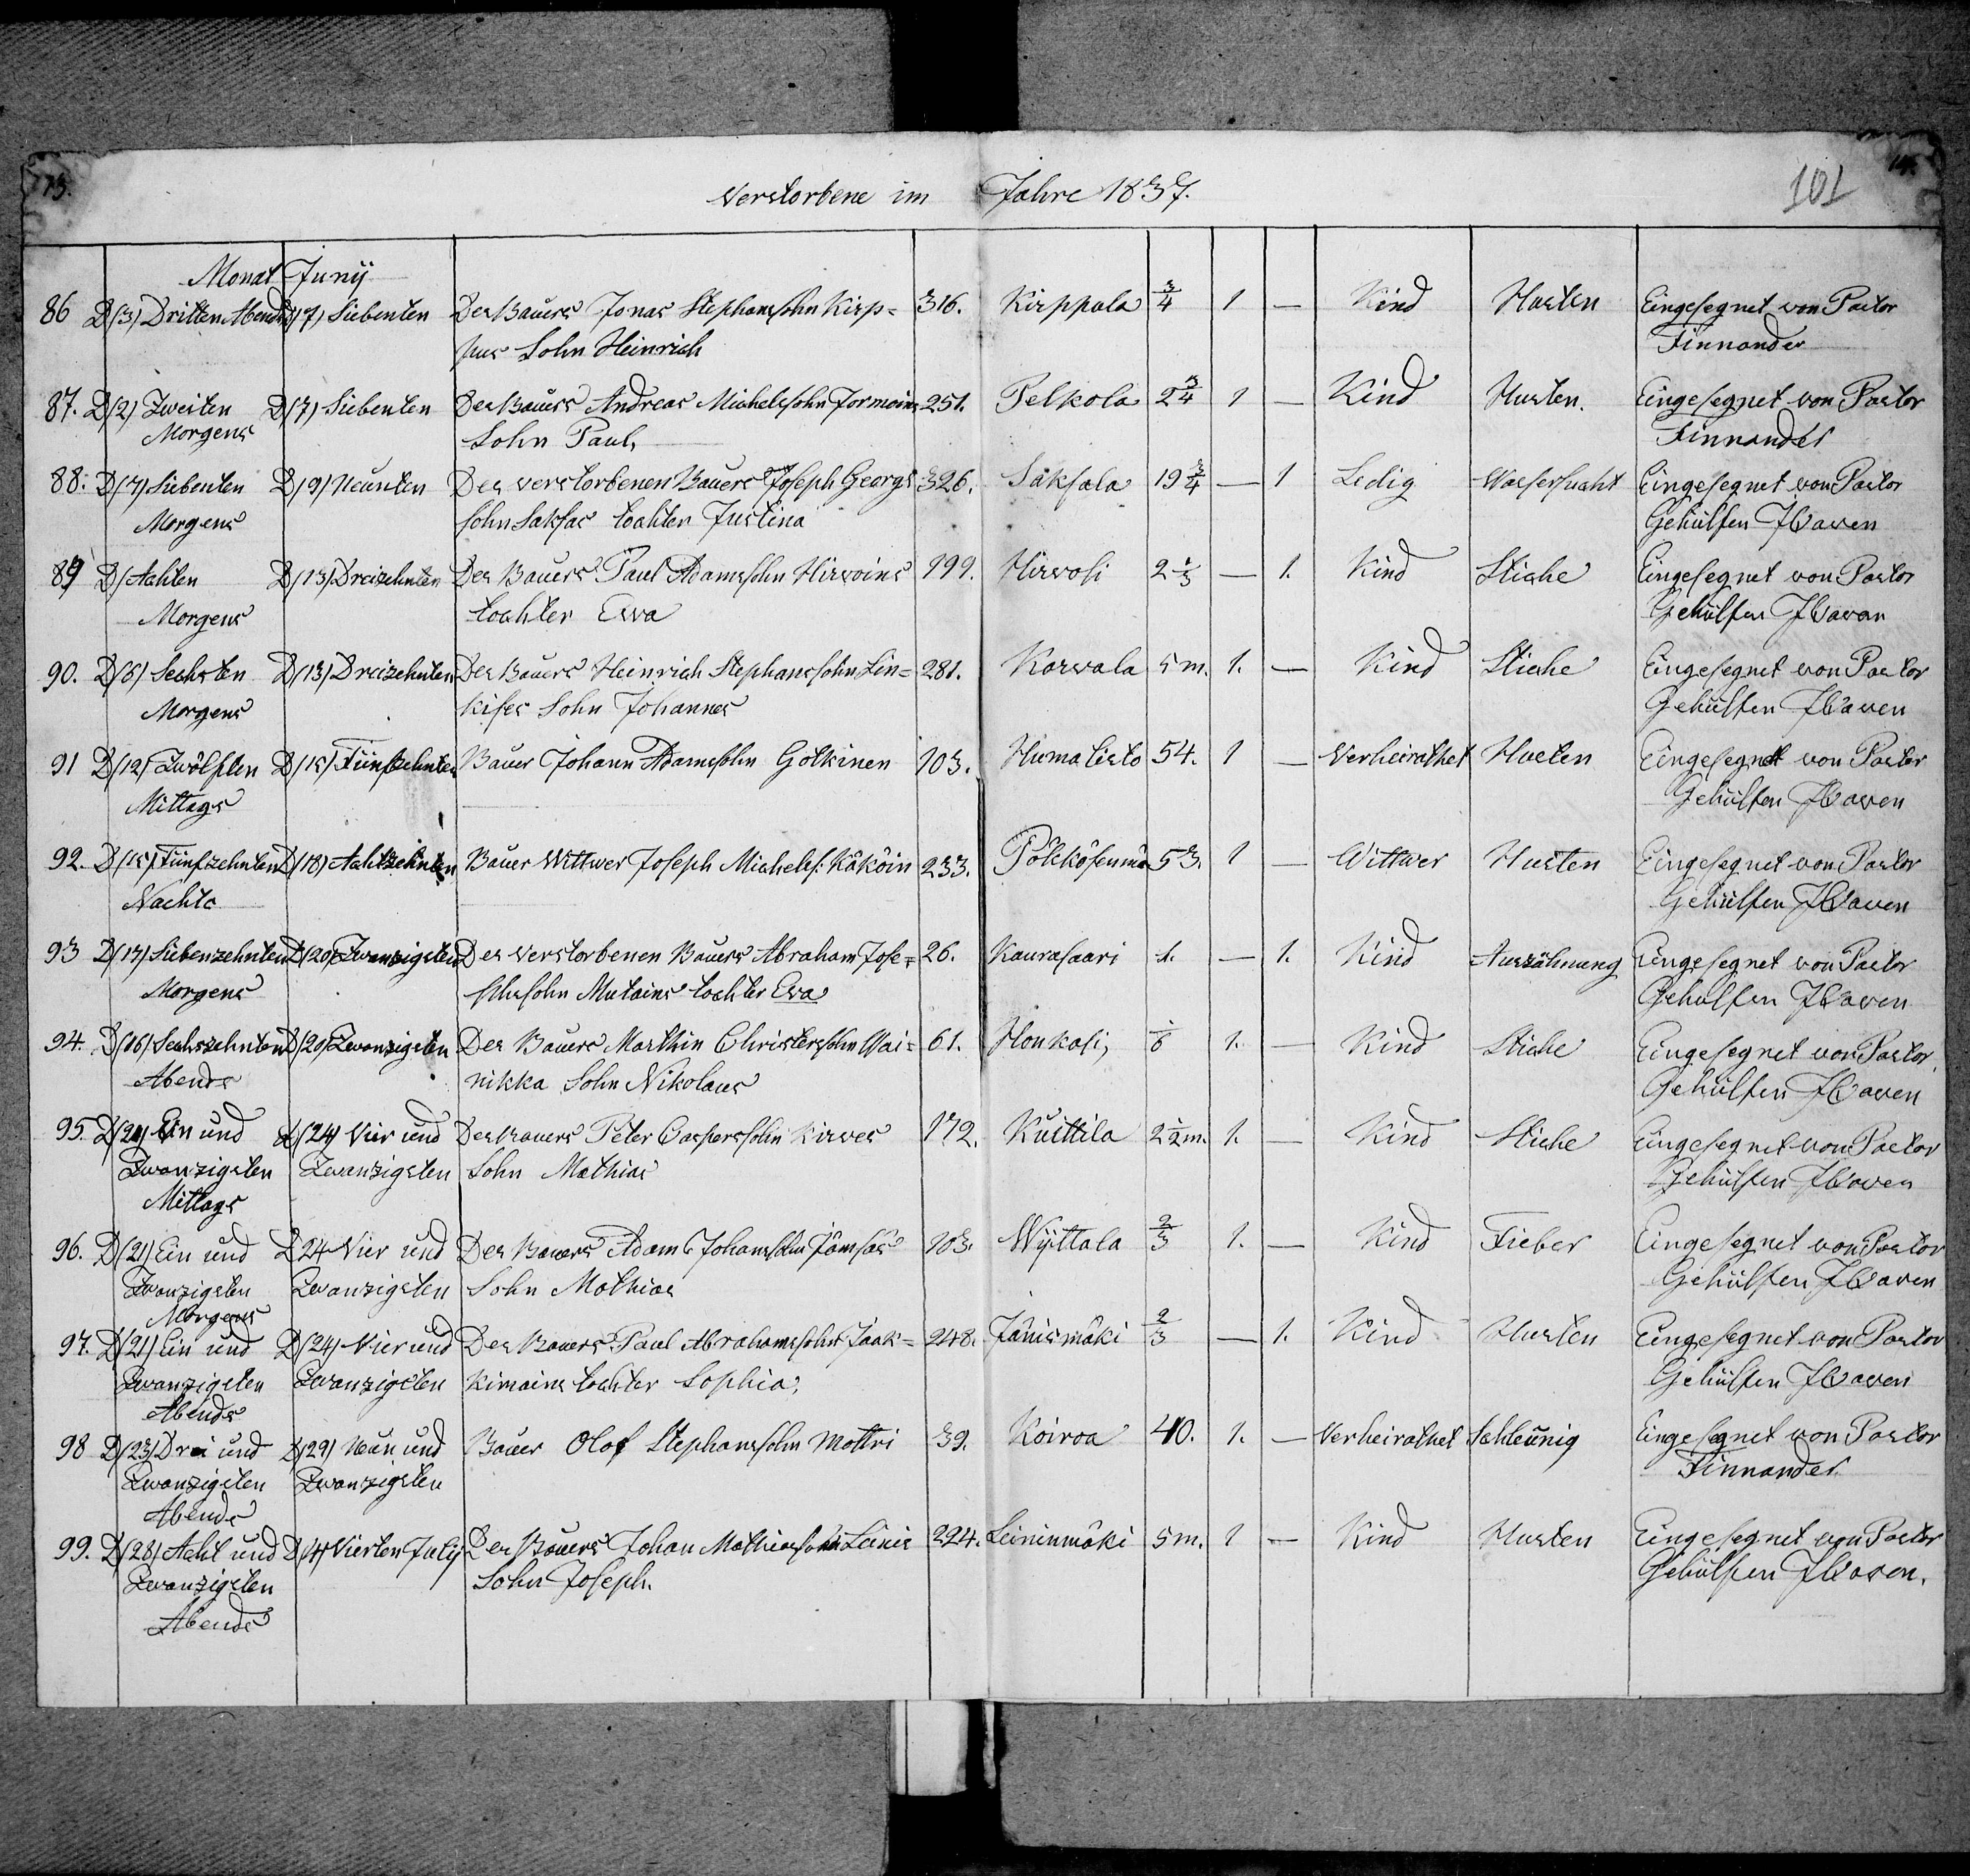 73.
Verstorbene im Jahre 1837.
101
Monat Junÿ
86 D(3) Dritten Abends (7) Siebenten Des Bauers Jonas Stephanssohn Kirp= 316. Kirppola 3/4 1 — Kind Husten Eingesegnet von Pastor
pus Sohn Heinrich Finnander
87. D(2) Zweiten D(7) Siebenten Des Bauers Andreas Michelssohn Jormoins 251. Pelkola 2 3/4 1 — Kind Husten. Eingesegnet von Pastor
Morgens Sohn Paul, Finnander
88. D(7) Siebenten D(9) Neunten Des verstorbenen Bauers Joseph Georgs 326. Säksala 19 3/4 — 1 Ledig Wassersucht Eingesegnet von Pastor
Morgens sohn Saksas tochter Justina Gehülfen
89 D(Achten D(13) Dreizehnten Des Bauers Paul Adamssohn Hirvoins 199. Hirvosi 2 1/3 — 1. Kind Stiche Eingesegnet von Pastor
Morgens tochter Eva Gehülfen
90. D(6) Sechsten D(13) Dreizehnten Des Bauers Heinrich Stephanssohn Lin= 281. Korvala 5 m. 1. — Kind Stiche Eingesegnet von Pastor
Morgens kises Sohn Johannes Gehülfen
91 D(12) Zwölften D(15) Fünfzehnten Bauer Johann Adamssohn Gotkinen 103. Humalisto 54. 1 — Verheirathet Husten Eingesegnet von Pastor
Mittags Gehülfen
92. D(15) Fünfzehnten D(18) Achtzehnten Bauer Wittwer Joseph Michels: Käköin 233. 53. 1 — Wittwer Husten Eingesegnet von Pastor
Nachts Gehülfen
93 D(17) Siebenzehnten D(20) Zwanzigsten Des verstorbenen Bauers Abraham Jose= 26. Kaurasaari 1. — 1. Kind Auszähnung Eingesegnet von Pastor
Morgens phssohn Mutains tochter Eva Gehülfen
94. D(16) Sechszehnten D(20) Zwanzigsten Des Bauers Marthin Christerssohn Wai= 61. Honkasi, 1/6 1. — Kind Stiche Eingesegnet von Pastor
Abends nikka Sohn Nikolaus Gehülfen
95. D(21) Ein und d(24) Vier und Des Bauers Peter Casperssohn Kirves 172. Kuittila 2 1/2 m. 1. — Kind Stiche Eingesegnet von Pastor
Zwanzigsten Zwanzigsten Sohn Mathias Gehülfen
Mittags
96. D(21) Ein und D 24 Vier und Des Bauers Adam Johanssohn Jämsäs 103. Wÿttala 2/3 1. — Kind Fieber Eingesegnet von Pastor
Zwanzigsten Zwanzigsten Sohn Mathias Gehülfen
Morgens
97. D(21) Ein und D(24) Vier und Des Bauers Paul Abrahamssohn Jaak= 248. Jänismäki 2/3 — 1. Kind Husten Eingesegnet von Pastor
Zwanzigsten Zwanzigsten kimains tochter Sophia, Gehülfen
Abends
98 D(23) Drei und D(29) Neun und Bauer Olof Stephanssohn Mottri 39. Koiroa 40. 1. — Verheirathet Schleunig Eingesegnet von Pastor
Zwanzigsten Zwanzigsten Finnander
Abends
99. D(28) Acht und D(4) Vierten Julÿ Des Bauers Johan Mathiassohn Leinis 294. Leininmäki 5 m. 1 — Kind Husten Eingesegnet von Pastor
Zwanzigsten Sohn Joseph. Gehülfen
Abends